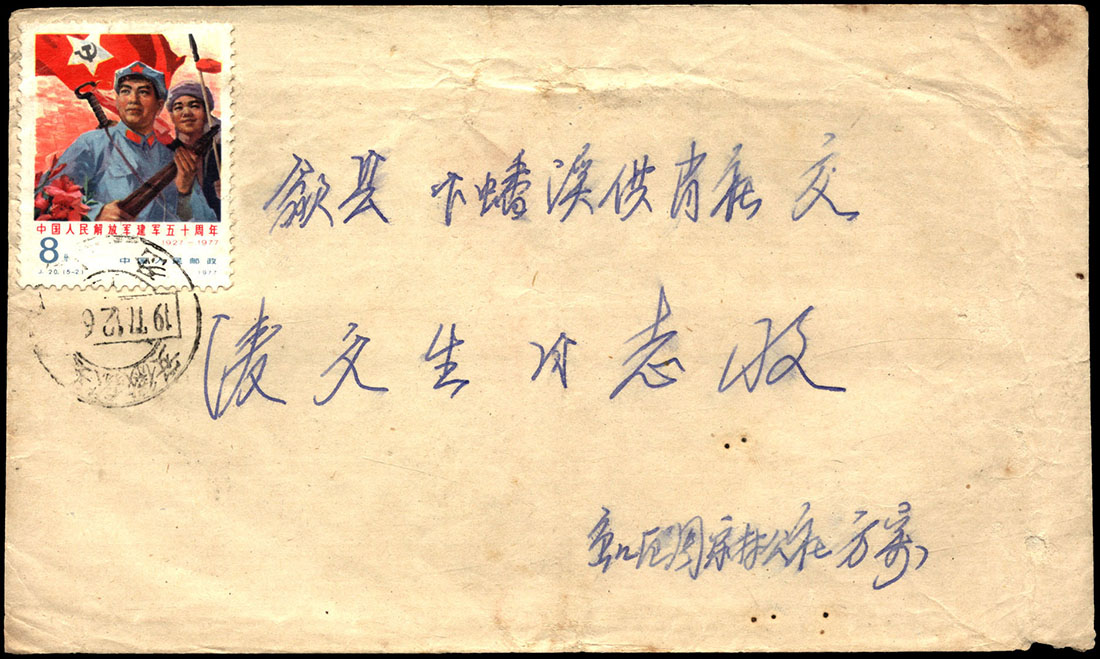 中国人民解放军建军五十周年
1927-1977
8分
中国人民邮政
J.20.(5-2)
1977
1977.12.6
安徽
歙县 卡蟠溪供肖社 交
凌文生 同志 收
周家村公社 方寄